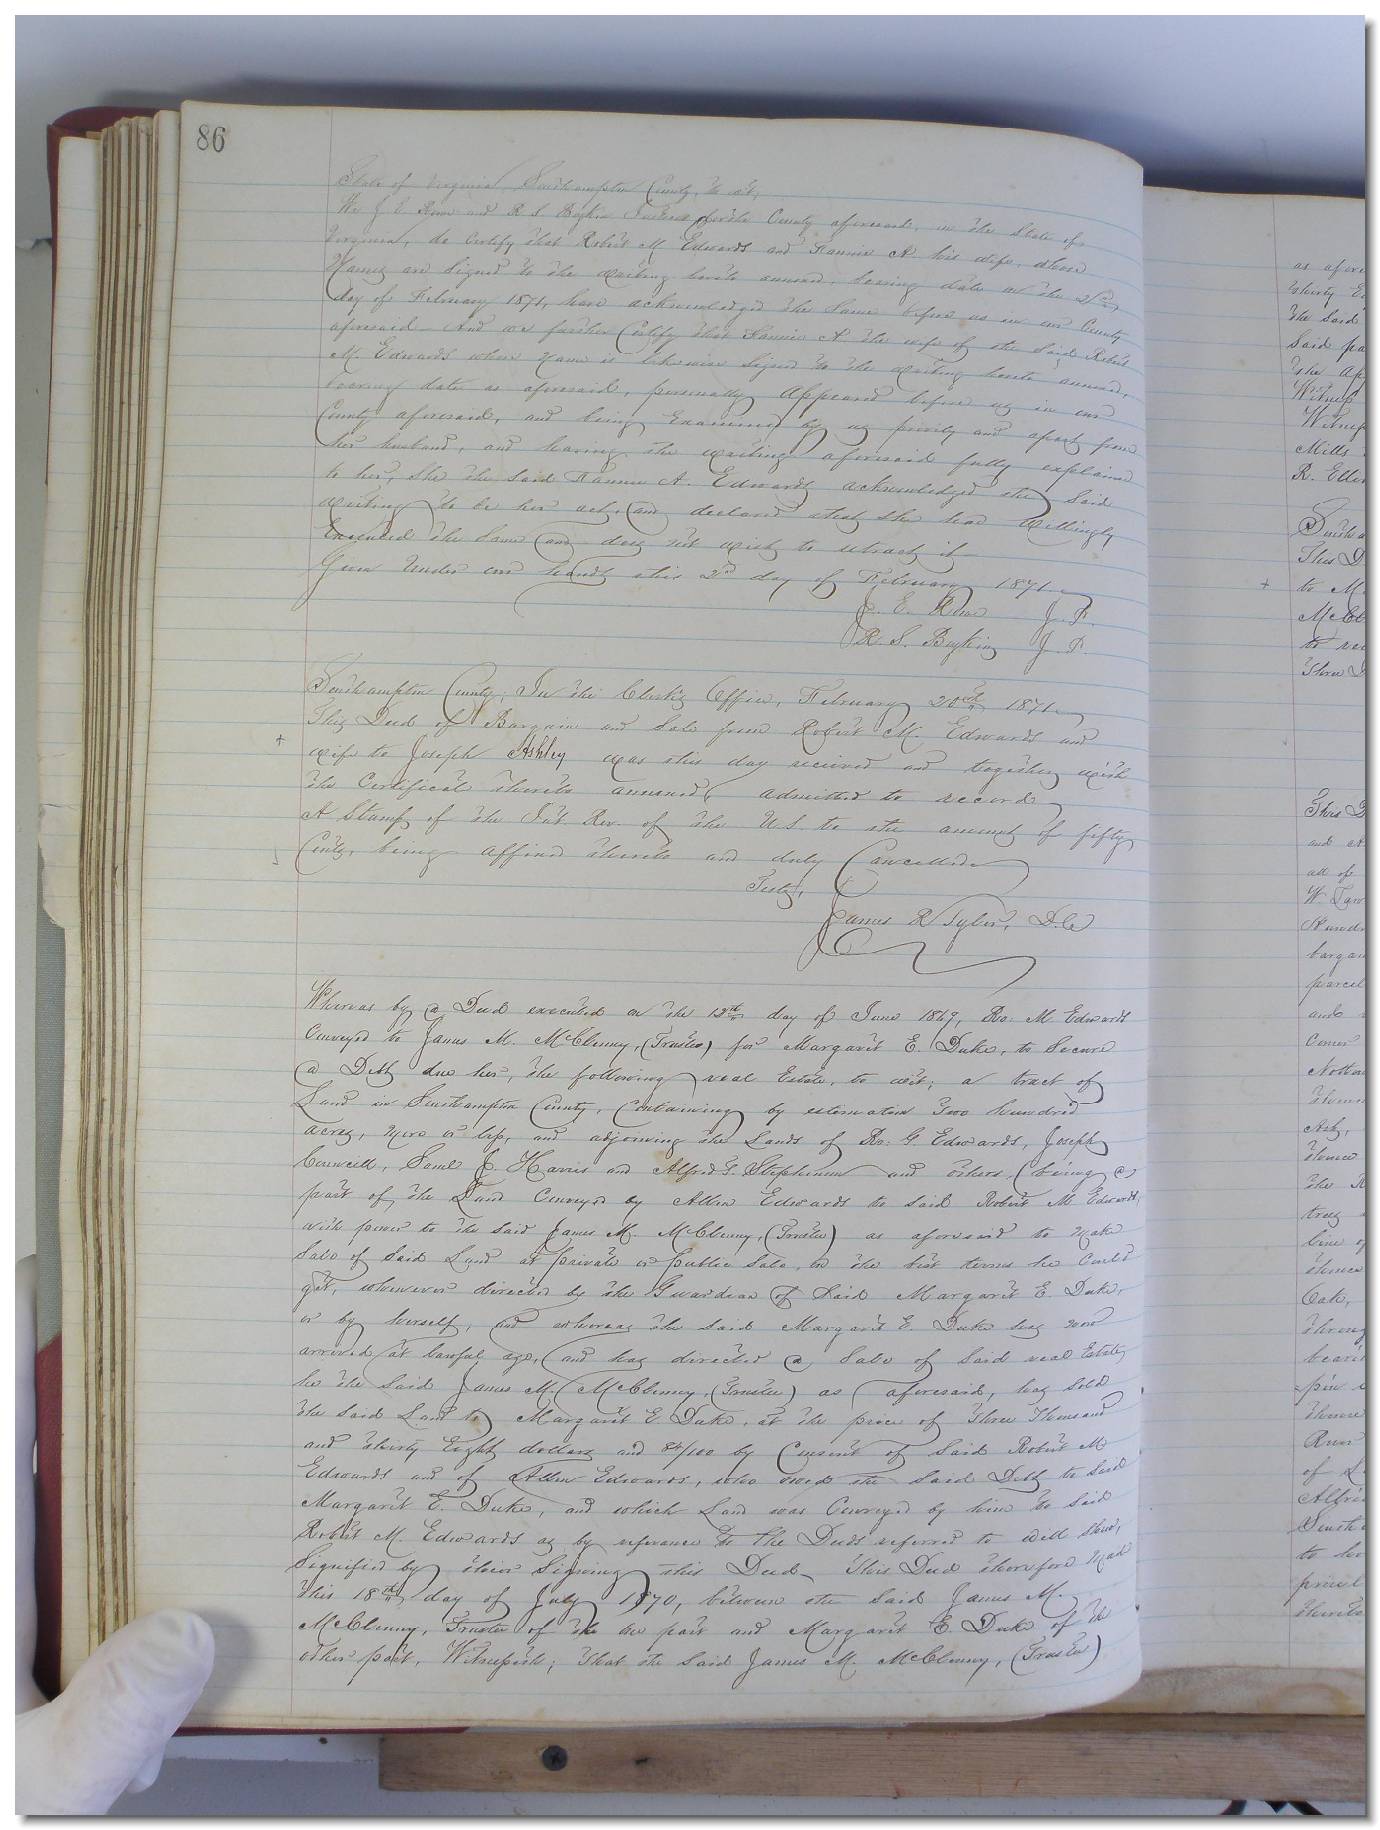 86
State of Virginia, Southampton County, to wit;
We J. E. Rose and R S Boykin Justices for the County aforesaid, in the State of
Virginia, do Certify that Robert M Edwards and Fannie A his wife, whose
Names are Signed to the writing hereto annexed, bearing date on the 2nd
day of February 1871, have acknowledged the Same before us in our County
aforesaid - And we further Certify that Fannie A the wife of the Said Robert
M. Edwards whose name is likewise Signed to the writing hereto annexed,
bearing date as aforesaid, personally Appeared before us in our
County aforesaid, and being Examined by us privily and apart from
her husband, and having the writing aforesaid fully explained
to her, She the Said Fannie A. Edwards acknowledged the Said
writing to be her act, and declared that She had Willingly
Executed the Same and does not wish to retract it -
Given Under our hands this 2nd day of February 1871
J. E. Rose J. P.
R. S. Boykin J. P.
Southampton County; In the Clerk's Office, February 20th 1871
This Deed of Bargain and Sale from Robert M. Edwards and
+ wife to Joseph Ashley was this day received and together with
the Certificate thereto annexed, admitted to record
A Stamp of the Int. Rev. of the U. S. to the amount of fifty
Cents, being affixed thereto and duly Cancelled
Teste,
James R Tyler, D.C
Whereas by a Deed executed on the 12th day of June 1869, Ro. M Edwards
Conveyed to James M. McClenny, (Trustee) for Margaret E. Duke, to Secure
a Debt due her, the following real Estate, to wit; a tract of
Land in Southampton County, Containing by estimation Two hundred
acres, more or less, and adjoining the Lands of Ro: G. Edwards, Joseph
Councill, Saml J. Harris and Alfred G. Stephenson and others, (being a
part of the Land Conveyed by Allen Edwards to Said Robert M Edwards,
with power to the Said James M. McClenny, (Trustee) as aforesaid to make
Sale of Said Land at private or public Sale, on the best terms he Could
get, whenever directed by the Guardian of Said Margaret E. Duke,
or by herself, and whereas the Said Margaret E. Duke has now
arrived at lawful age, and has directed a Sale of Said real Estate,
he the Said James M. McClenny, (Trustee) as aforesaid, has Sold
the Said Land to Margaret E Duke, at the price of Three Thousand
and thirty Eight dollars and 84/100 by Consent of Said Robert M
Edwards and of Allen Edwards, who owed the Said Debt to Said
Margaret E. Duke, and which Land was Conveyed by him to Said
Robert M. Edwards as by reference to the Deeds referred to will Show,
Signified by their Signing this Deed - This Deed therefore Made
this 18th day of July 1870, between the Said James M.
McClenny, Trustee of the one part and Margaret E. Duke of the
other part, Witnesseth; That the Said James M. McClenny, (Trustee)
thirty
the Said
Said
Mills
R.
+ to M.
and
all of
W.
parcel
Corner
Ash,
thence
the
trees
line of
thence
Oak,
pin
thence
Run
of
to